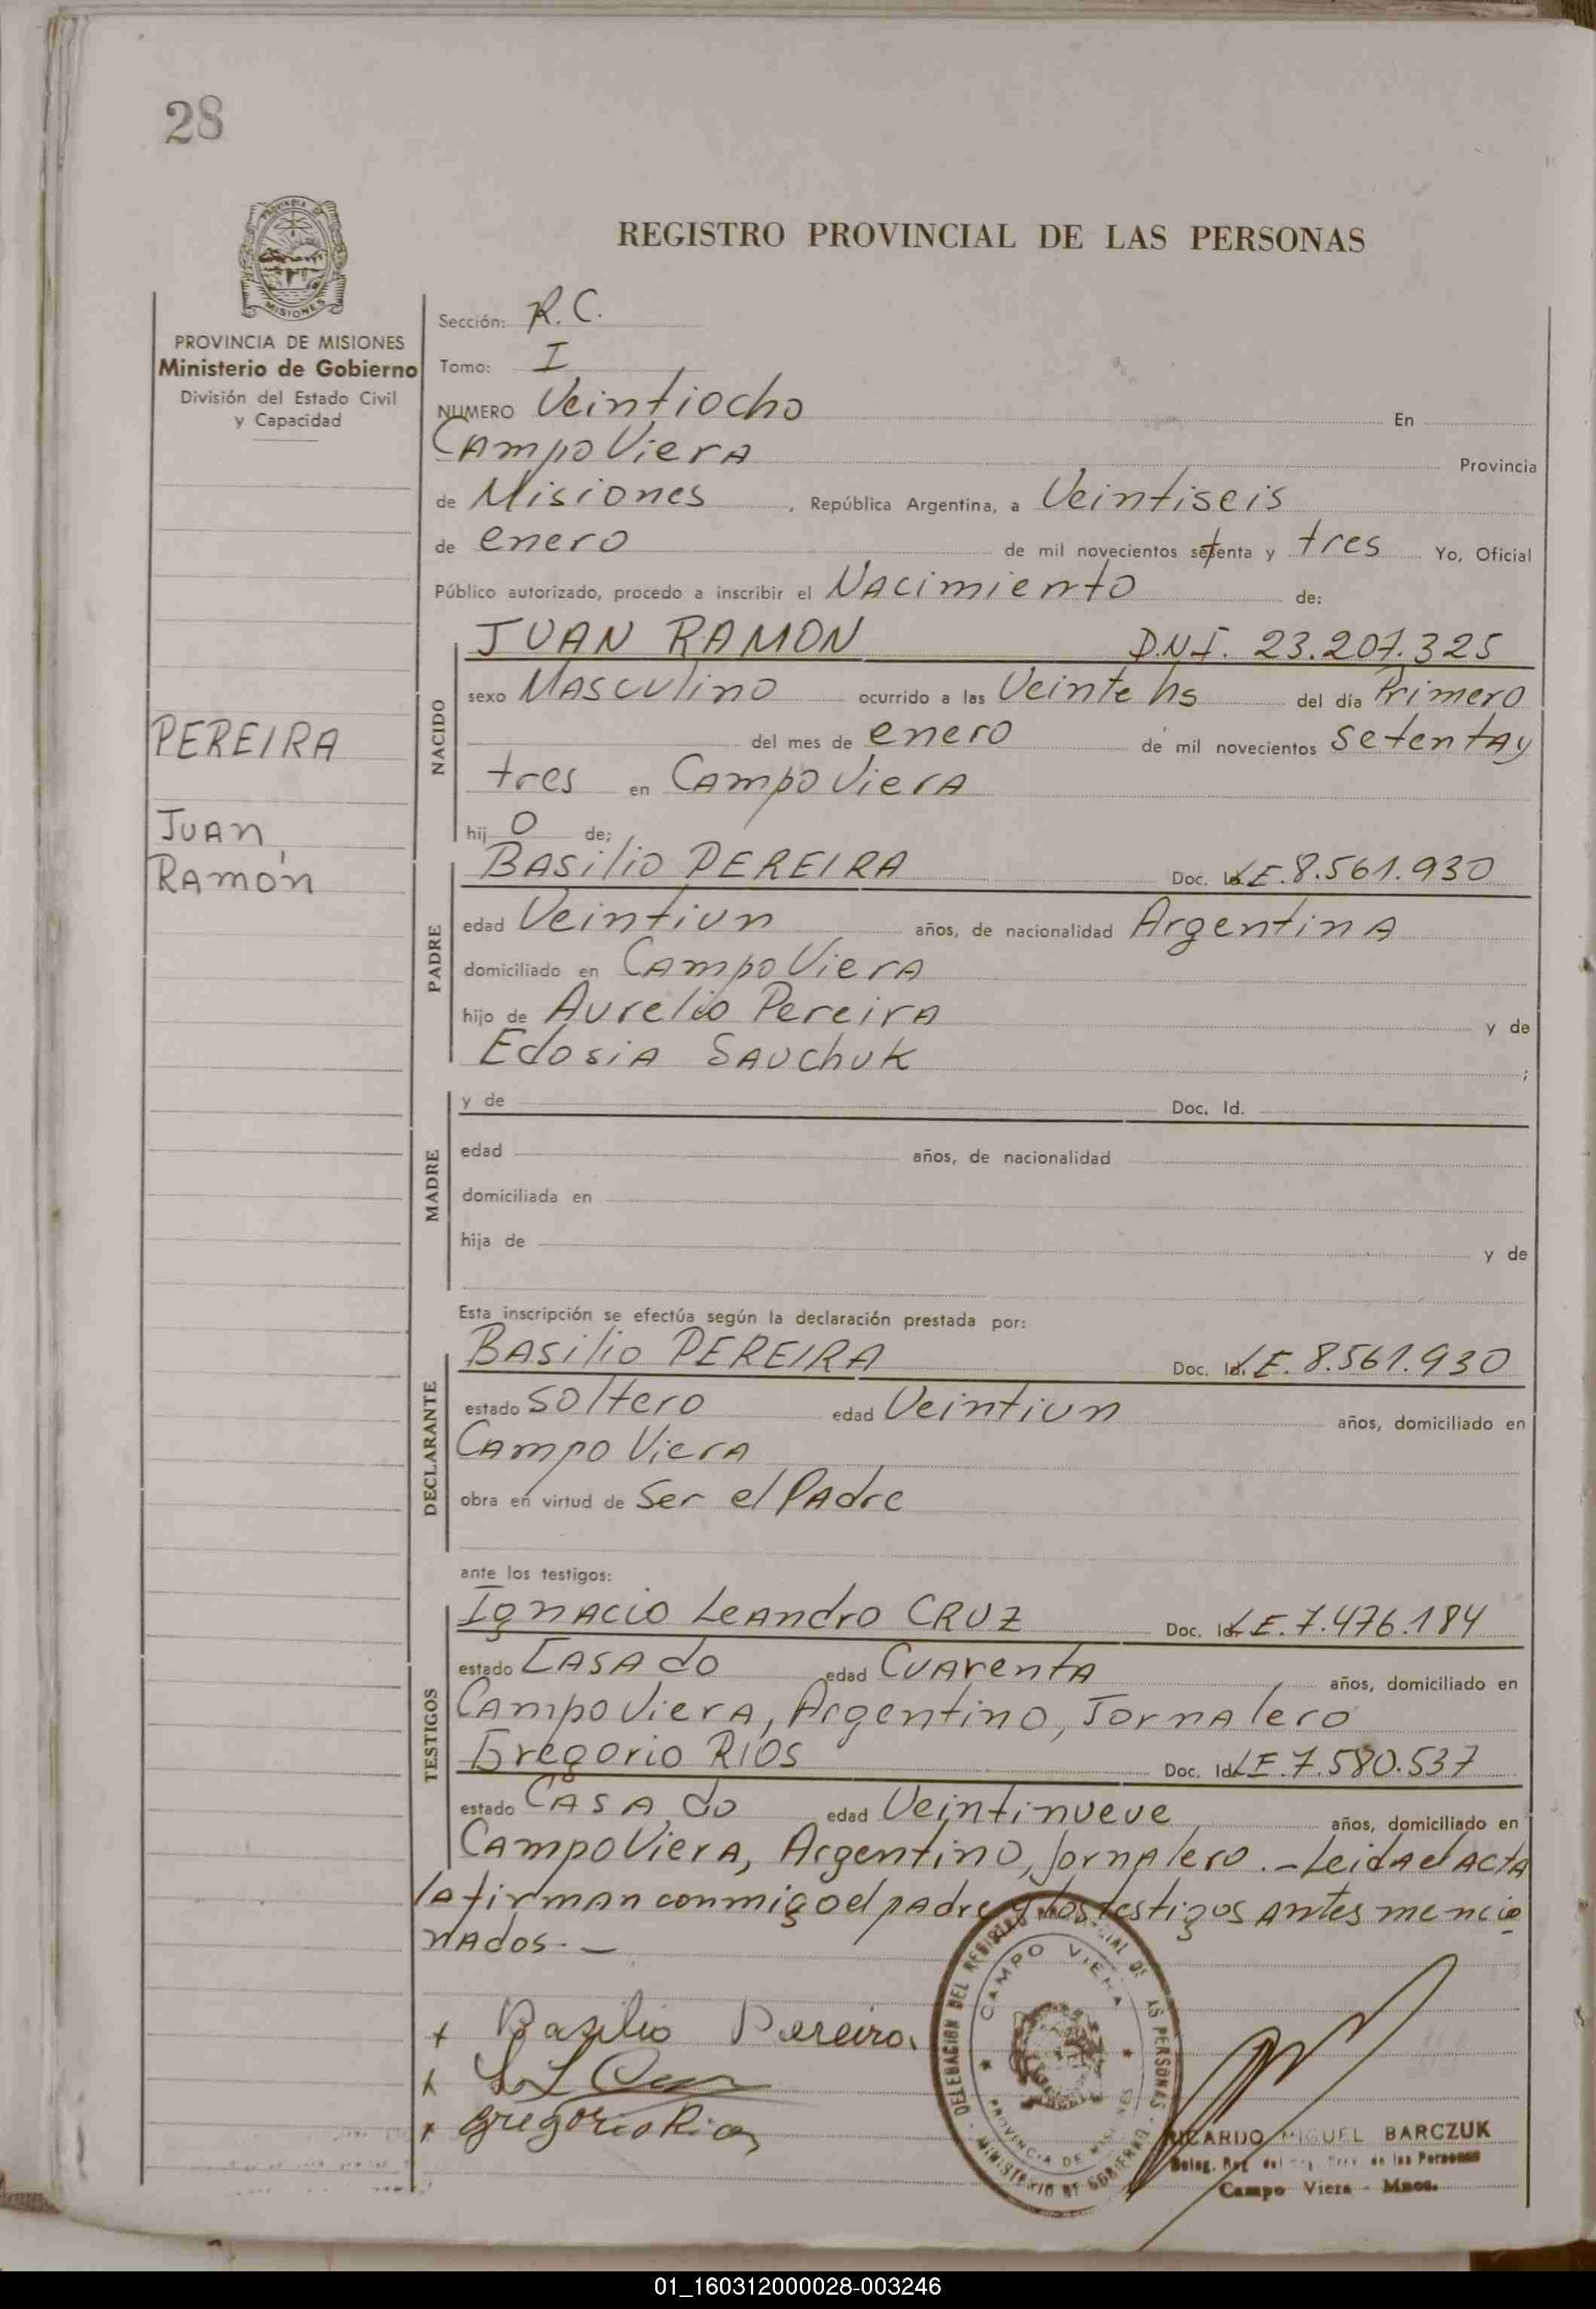 28
REGISTRO PROVINCIAL DE LAS PERSONAS
PROVINCIA DE MISIONES
Ministerio de Gobierno
División del Estado Civil
y Capacidad
PEREIRA
Juan
Ramón
Sección: R.C.
Tomo: I
NUMERO Veintiocho En
Campo Viera Provincia
de Misiones, República Argentina, a Veintiseis
de enero de mil novecientos setenta y tres Yo, Oficial
Público autorizado, procedo a inscribir el Nacimiento de:
NACIDO
JUAN RAMON D.N.I. 23.207.325
sexo Masculino ocurrido a las Veinte hs del día Primero
del mes de enero de mil novecientos setenta y
tres en Campo Viera
hijo de:
PADRE
Basilio PEREIRA Doc. Id. L.E. 8.561.930
edad Veintiun años, de nacionalidad Argentina
domiciliado en Campo Viera
hijo de Aurelio Pereira y de
Edosia Sauchuk ;
MADRE
y de Doc. Id.
edad años, de nacionalidad
domiciliada en
hija de y de
Esta inscripción se efectúa según la declaración prestada por:
DECLARANTE
Basilio PEREIRA Doc. Id. L.E. 8.561.930
estado soltero edad Veintiun años, domiciliado en
Campo Viera
obra en virtud de Ser el Padre
ante los testigos:
TESTIGOS
Ignacio Leandro CRUZ Doc. Id. L.E. 7.476.184
estado Casado edad Cuarenta años, domiciliado en
Campo Viera, Argentino, Jornalero
Gregorio RIOS Doc. Id. L.E. 7.580.537
estado Casado edad Veintinueve años, domiciliado en
Campo Viera, Argentino, jornalero.- Leida el acta
la firman conmigo el padre y los testigos antes mencio
nados.-
Basilio Pereira
Gregorio Rios
DELEGACION DEL REGISTRO PROVINCIAL DE LAS PERSONAS
CAMPO VIERA
PROVINCIA DE MISIONES
MINISTERIO DE GOBIERNO
RICARDO MIGUEL BARCZUK
de las Personas
Campo Viera - Mnes.
01_160312000028-003246